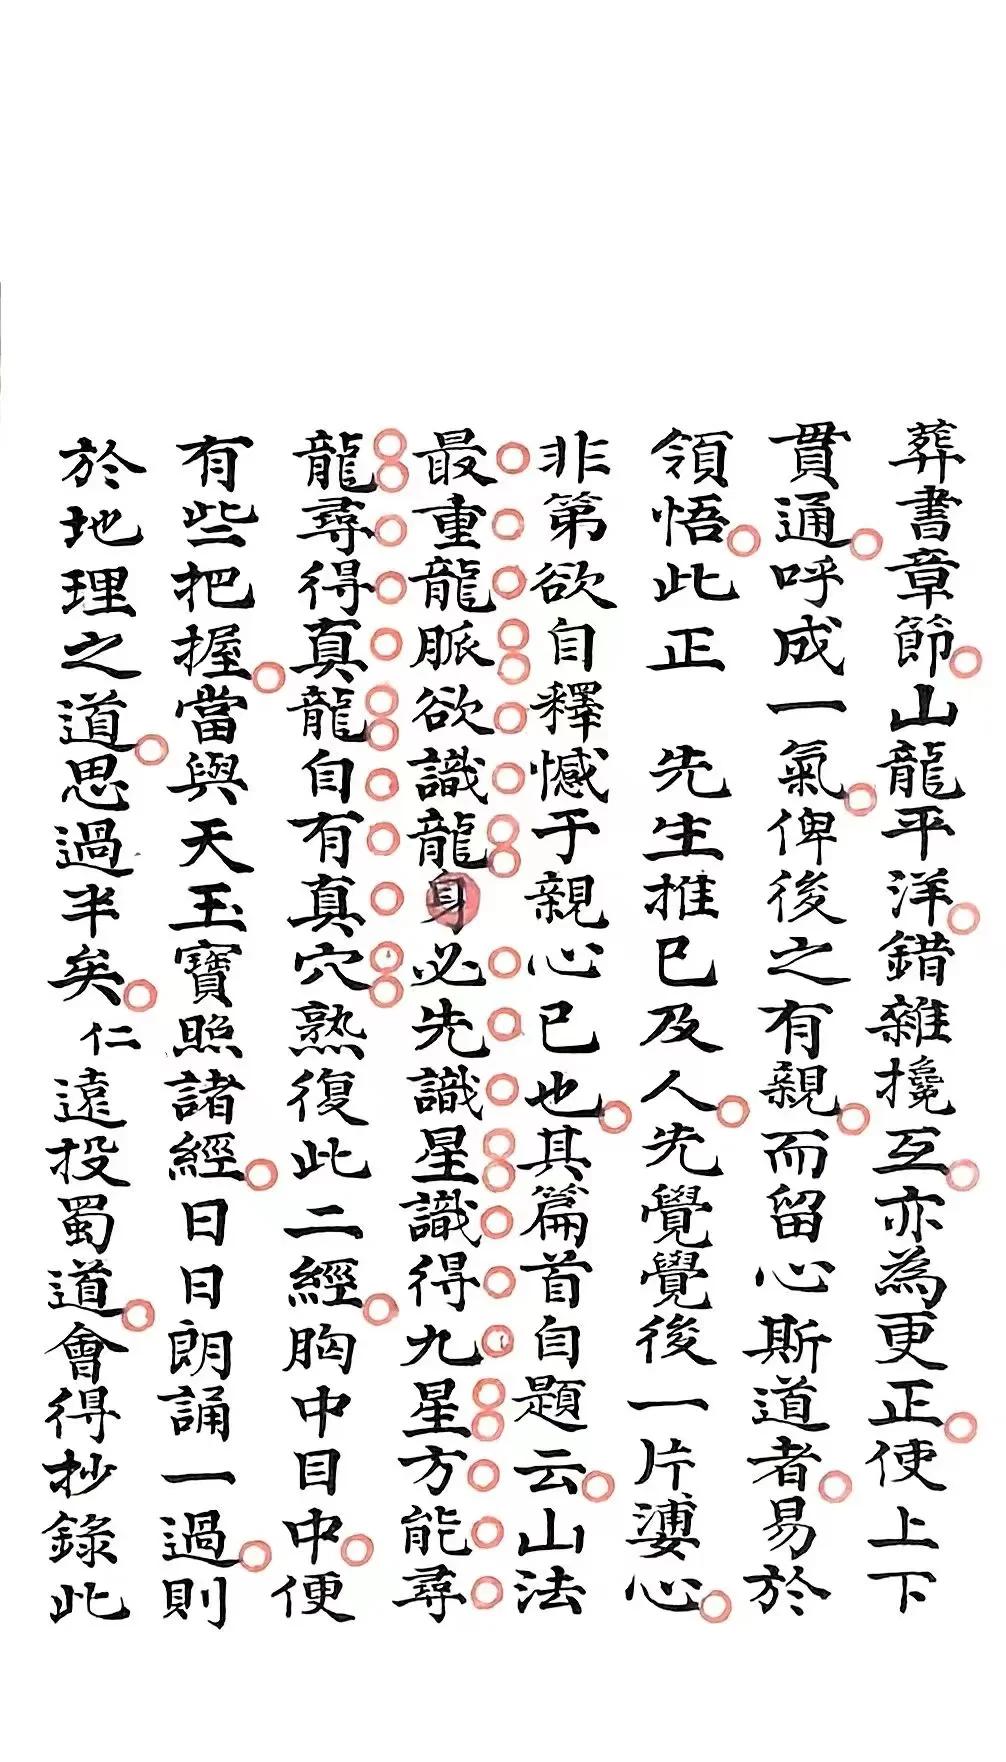 葬書章節山龍平洋錯雜攙互亦為更正使上下
貫通呼成一氣俾後之有親而留心斯道者易於
領悟此正 先生推已及人先覺覺後一片婆心
非第欲自釋憾于親心已也其篇首自題云山法
最重龍脈欲識龍身必先識星識得九星方能尋
龍尋得真龍自有真穴熟復此二經胸中目中便
有些把握當與天玉寶照諸經日日朗誦一過則
於地理之道思過半矣仁遠投蜀道會得抄錄此